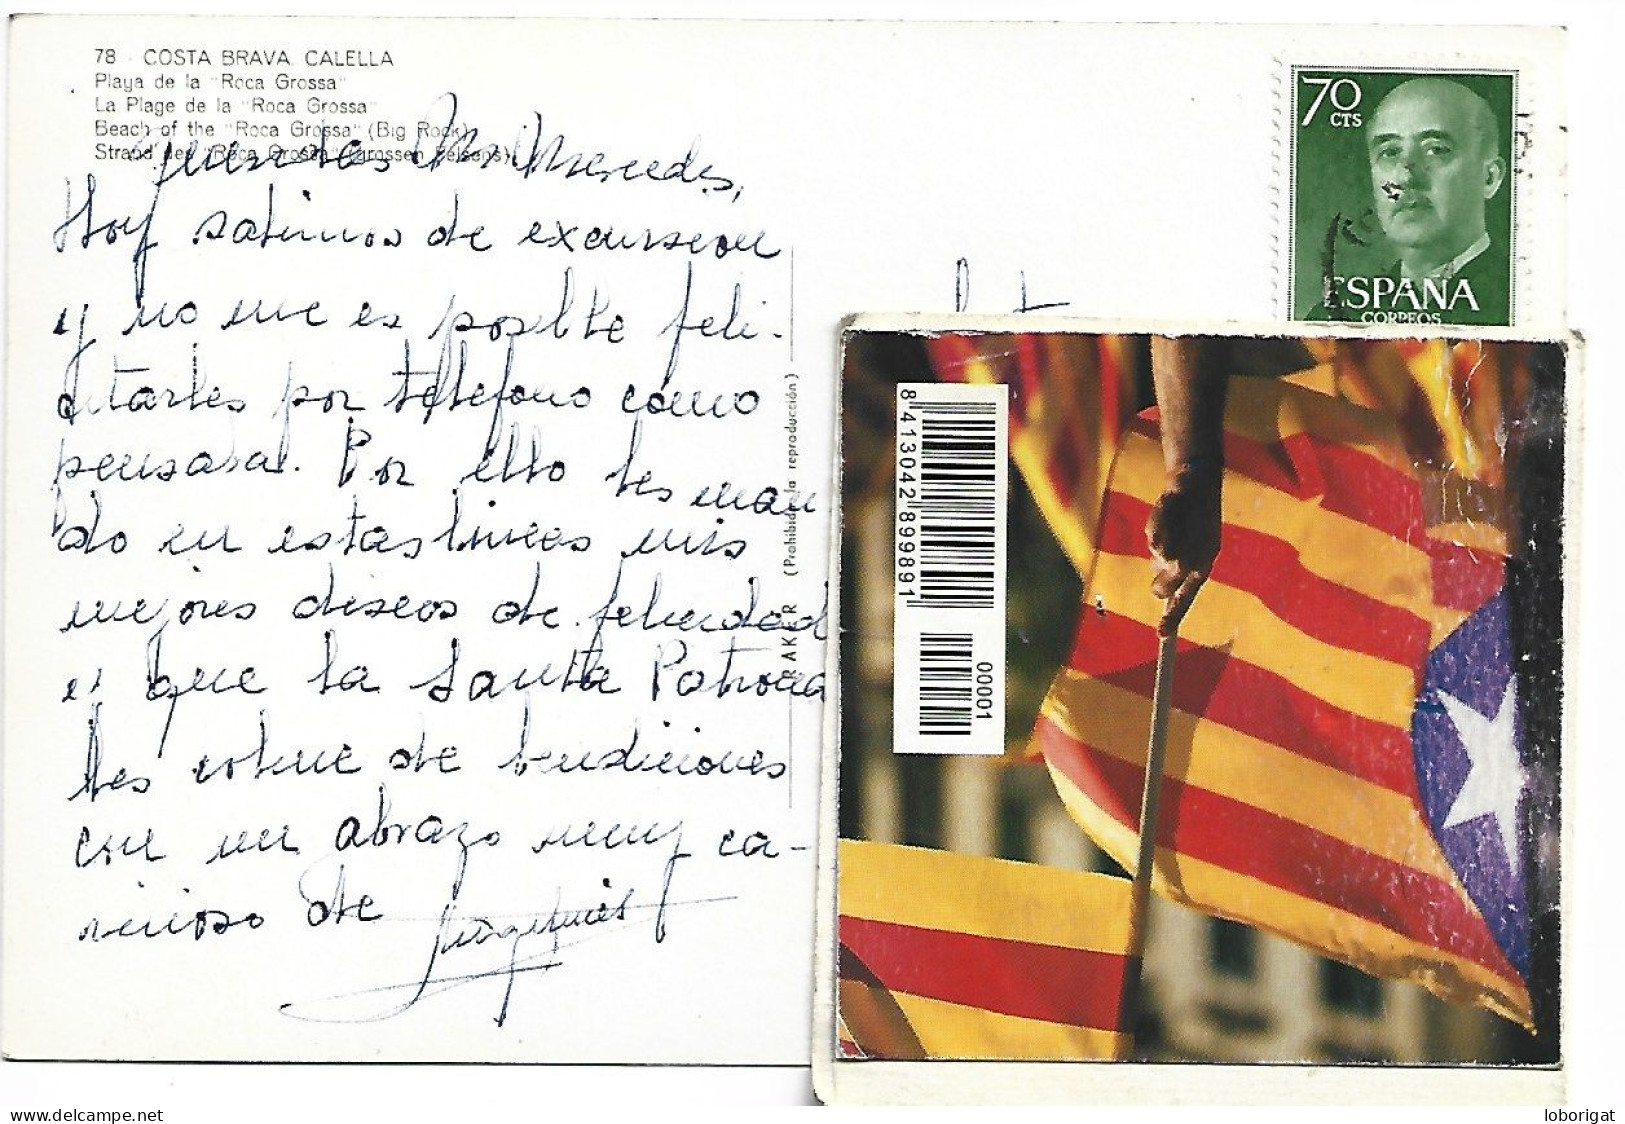 78 - COSTA BRAVA. CALELLA
Playa de la "Roca Grossa"
La Plage de la "Roca Grossa"
Beach of the "Roca Grossa" (Big Rock)
Strand des "Roca Grossa" (grossen Felsens)
Mercedes,
Hoy salimos de excursion
y no me es posible feli-
citarles por telefono como
pensaba. Por ello les man
do en estas lineas mis
mejores deseos de felicidad
y que la Santa Patrona
les colme de bendiciones
con un abrazo muy ca-
riñoso de
(Prohibida la reproducción)
70
CTS
ESPAÑA
CORREOS
8 413042 899891
00001
loborigat